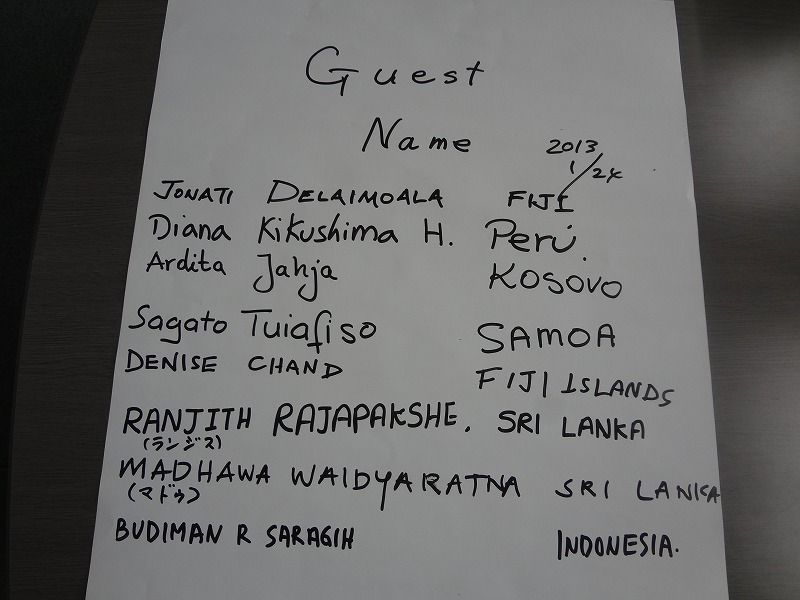 Guest
Name
2013
1/24
JONATI DELAIMOALA FIJI
Diana Kikushima H. Perú.
Ardita Jahja KOSOVO
Sagato Tuiafiso SAMOA
DENISE CHAND FIJI ISLANDS
RANJITH RAJAPAKSHE. SRI LANKA
(ランジス)
MADHAWA WAIDYARATNA SRI LANKA
(マドゥ)
BUDIMAN R SARAGIH INDONESIA.